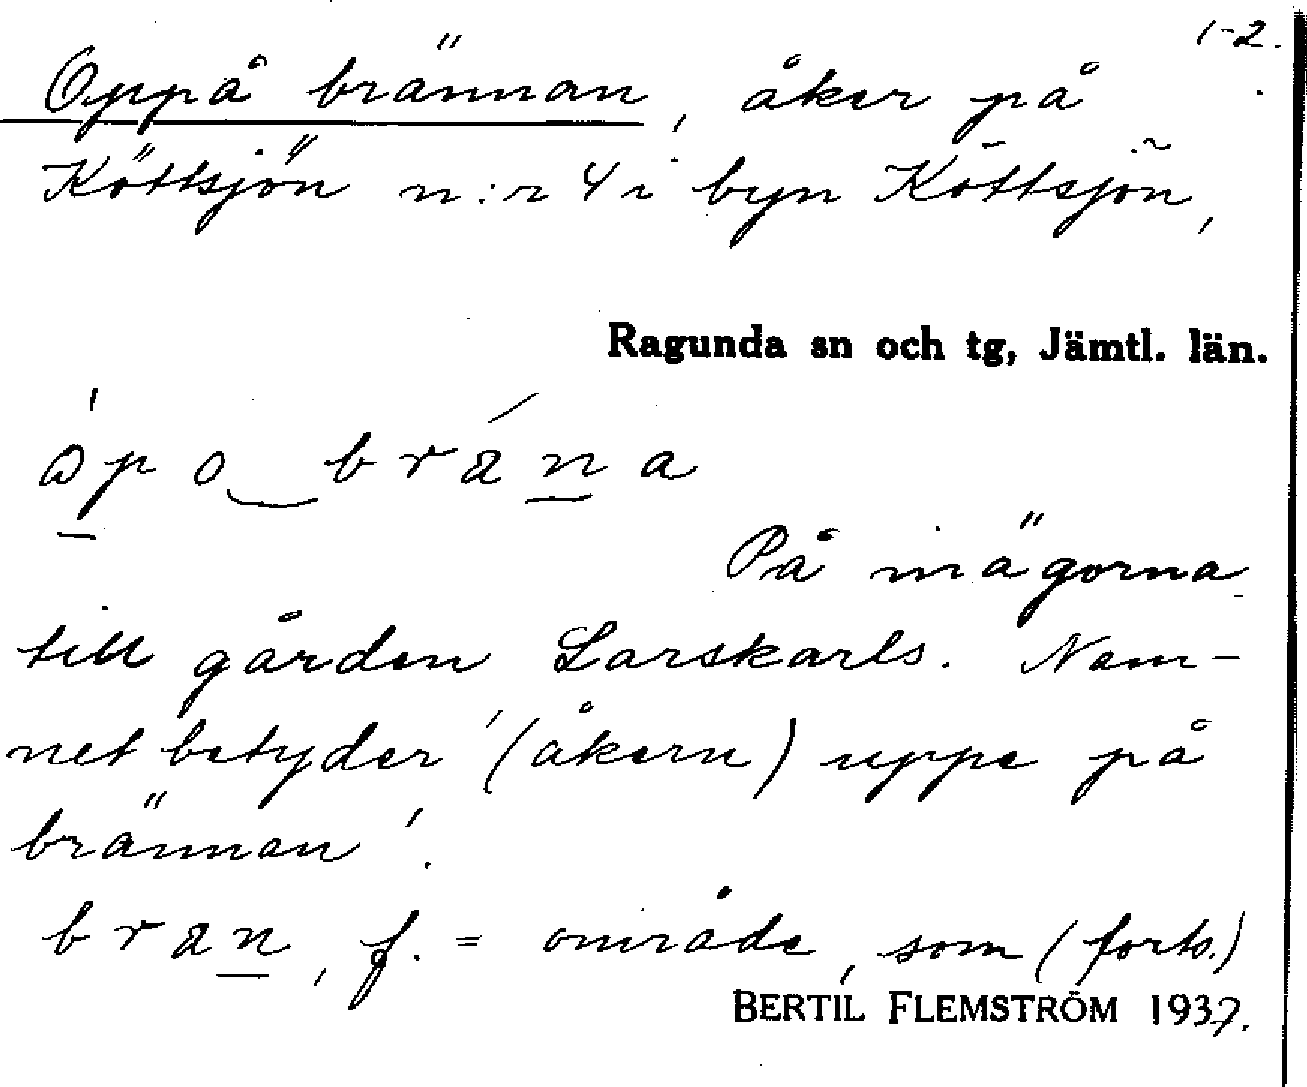 1-2.
Oppå brännan, åker på
Köttsjön n:r 4 i byn Köttsjön,
Ragunda sn och tg, Jämtl. län.
På inägorna
till gården Larskarls. Nam-
net betyder '(åkern) uppe på
brännan'.
bran, f. = område, som (forts.)
BERTIL FLEMSTRÖM 1937.